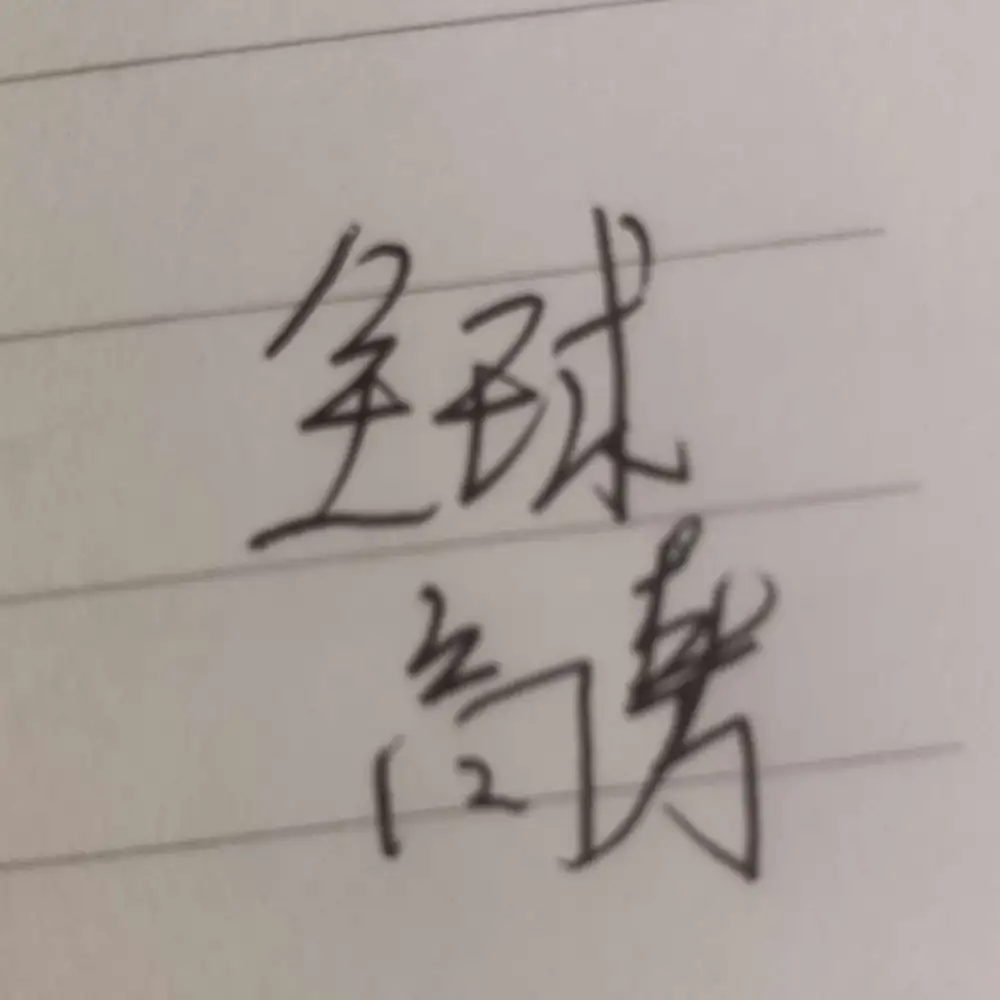 全球
高考